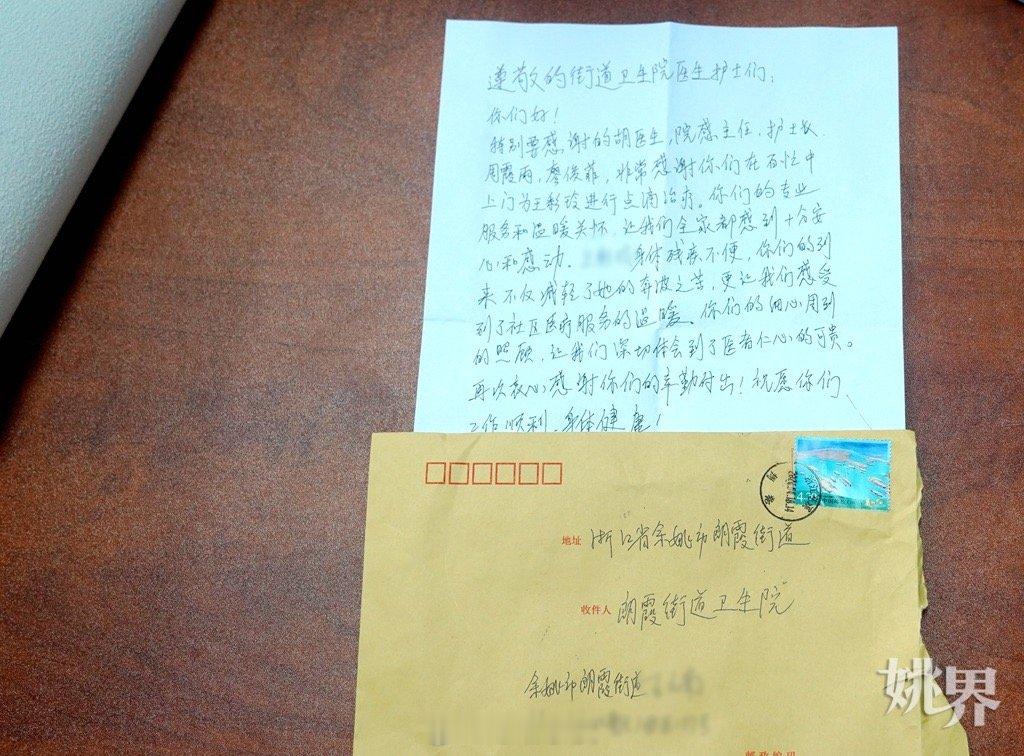 尊敬的街道卫生院医生护士们：
你们好！
特别要感谢的胡医生，院感主任，护士长
周霞雨，廖俊菲，非常感谢你们在百忙中
上门为王彩玲进行点滴治疗。你们的专业
服务和温暖关怀，让我们全家都感到十分安
心和感动。身体残疾不便，你们的到
来不仅减轻了她的奔波之苦，更让我们感受
到了社区医疗服务的温暖。你们的细心周到
的照顾，让我们深切体会到了医者仁心的可贵。
再次衷心感谢你们的辛勤付出！祝愿你们
工作顺利，身体健康！
地址 浙江省余姚市朗霞街道
收件人 朗霞街道卫生院
余姚市朗霞街道
邮政编码
姚界